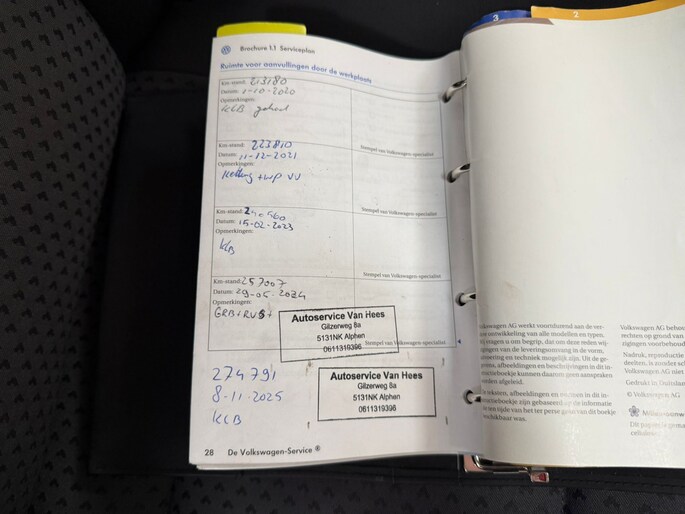 3
2
Brochure 1.1 Serviceplan
Ruimte voor aanvullingen door de werkplaats
Km-stand: 213180
Datum: 1-10-2020
Opmerkingen:
KLB gehad
Stempel van Volkswagen-specialist
Km-stand: 223810
Datum: 11-12-2021
Opmerkingen:
Ketting + wp VV
Stempel van Volkswagen-specialist
Km-stand: 240560
Datum: 15-02-2023
Opmerkingen:
KLB
Stempel van Volkswagen-specialist
Km-stand: 257007
Datum: 29-05-2024
Opmerkingen:
GRB+RVS+
Autoservice Van Hees
Gilzerweg 8a
5131NK Alphen
0611319396
Stempel van Volkswagen-specialist
274791
8-11-2025
KLB
Autoservice Van Hees
Gilzerweg 8a
5131NK Alphen
0611319396
28 De Volkswagen-Service ®
Volkswagen AG werkt voortdurend aan de ver-
ontwikkeling van alle modellen en typen.
vragen u om begrip, dat om deze reden wij-
zigingen van de leveringsomvang in de vorm,
uitvoering en techniek mogelijk zijn. Uit de ge-
gevens, afbeeldingen en beschrijvingen in dit in-
structieboekje kunnen daarom geen aanspraken
worden afgeleid.
teksten, afbeeldingen en normen in dit in-
structieboekje zijn gebaseerd op de informatie
ten tijde van het ter perse gaan van dit boekje
beschikbaar was.
Volkswagen AG behou
rechten op grond van
zigingen voorbehoud
Nadruk, reproductie
deelten, is zonder sch
Volkswagen AG niet
Gedrukt in Duitslan
© Volkswagen AG
Dit papier is gema
cellulose.